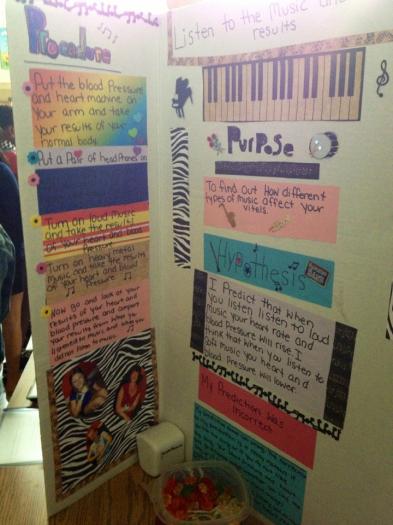 Procedure
Put the blood Pressure
and heart machine on
Your arm and take
Your results of your
normal body.
Put a Pair of head Phones on
Turn on loud music
and take the results
of your heart and blood
Pressure
Turn on heavy metal
Music and take the results
of your heart and blood
Pressure
Now go and look at your
results of your heart and
blood pressure and compare
your results from when you
listened to music and when you
did not listen to music.
Listen to the Music and
results
PurPose
To find out How different
types of music affect your
vitals.
Hypothesis
I Predict that when
you listen listen to loud
music your heart rate and
blood Pressure will rise. I
think that when you listen to
soft music you heart and
blood Pressure will lower.
My Prediction was
Incorrect